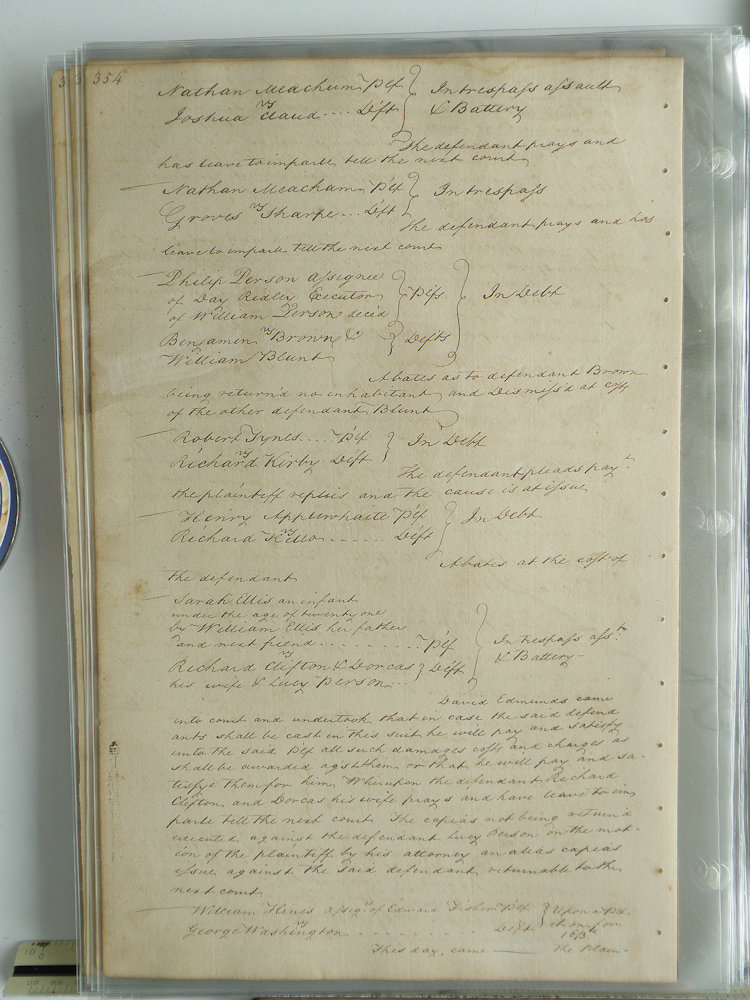 354
Nathan Meachum Plf } In trespass assault
vs
Joshua Claud .... Deft } & Battery
The defendant prays and
has leave to imparle tell the next court
Nathan Meacham Plf } In trespass
vs
Groves Sharpe ... Deft
The defendant prays and has
leave to imparle tell the next court
Philip Person assignee
of Day Ridley Executor } Plfs } In Debt
of William Person decid
vs
Benjamin Brown & } Defts
William Blunt
Abates as to defendant Brown
being return'd no inhabitant and Dismiss'd at cost
of the other defendant Blunt
Robert Tynes .... Plf } In Debt
vs
Richard Kirby Deft
The defendant pleads paymt
the plaintiff replies and the cause is at issue
Henry Applewhaite Plf } In Debt
vs
Richard Kello ...... Deft
Abates at the cost of
the defendant
Sarah Ellis an infant
under the age of twenty one
by William Ellis her father
and next friend ......... Plf } In trespass asst
vs
Richard Clifton & Dorcas } Deft & Battery
his wife & Lucy Person ...
David Edmunds came
into court and undertook that in case the said defend
ants shall be cast in this suit he will pay and satisfy
unto the said Plf all such damages costs and charges as
shall be awarded agst them or that he will pay and sa-
tisfye them for him Whereupon the defendant Richard
Clifton and Dorcas his wife prays and have leave to im
parle tell the next court The capias not being return'd
executed against the defendant Lucy Person on the mot-
ion of the plaintiff by his attorney an alias capias
issue against the said defendant returnable to the
next court
William Hines assigne of Edward Fisher Plf } Upon a Pet.
vs
George Washington ......... Deft
This day came — the Plain-